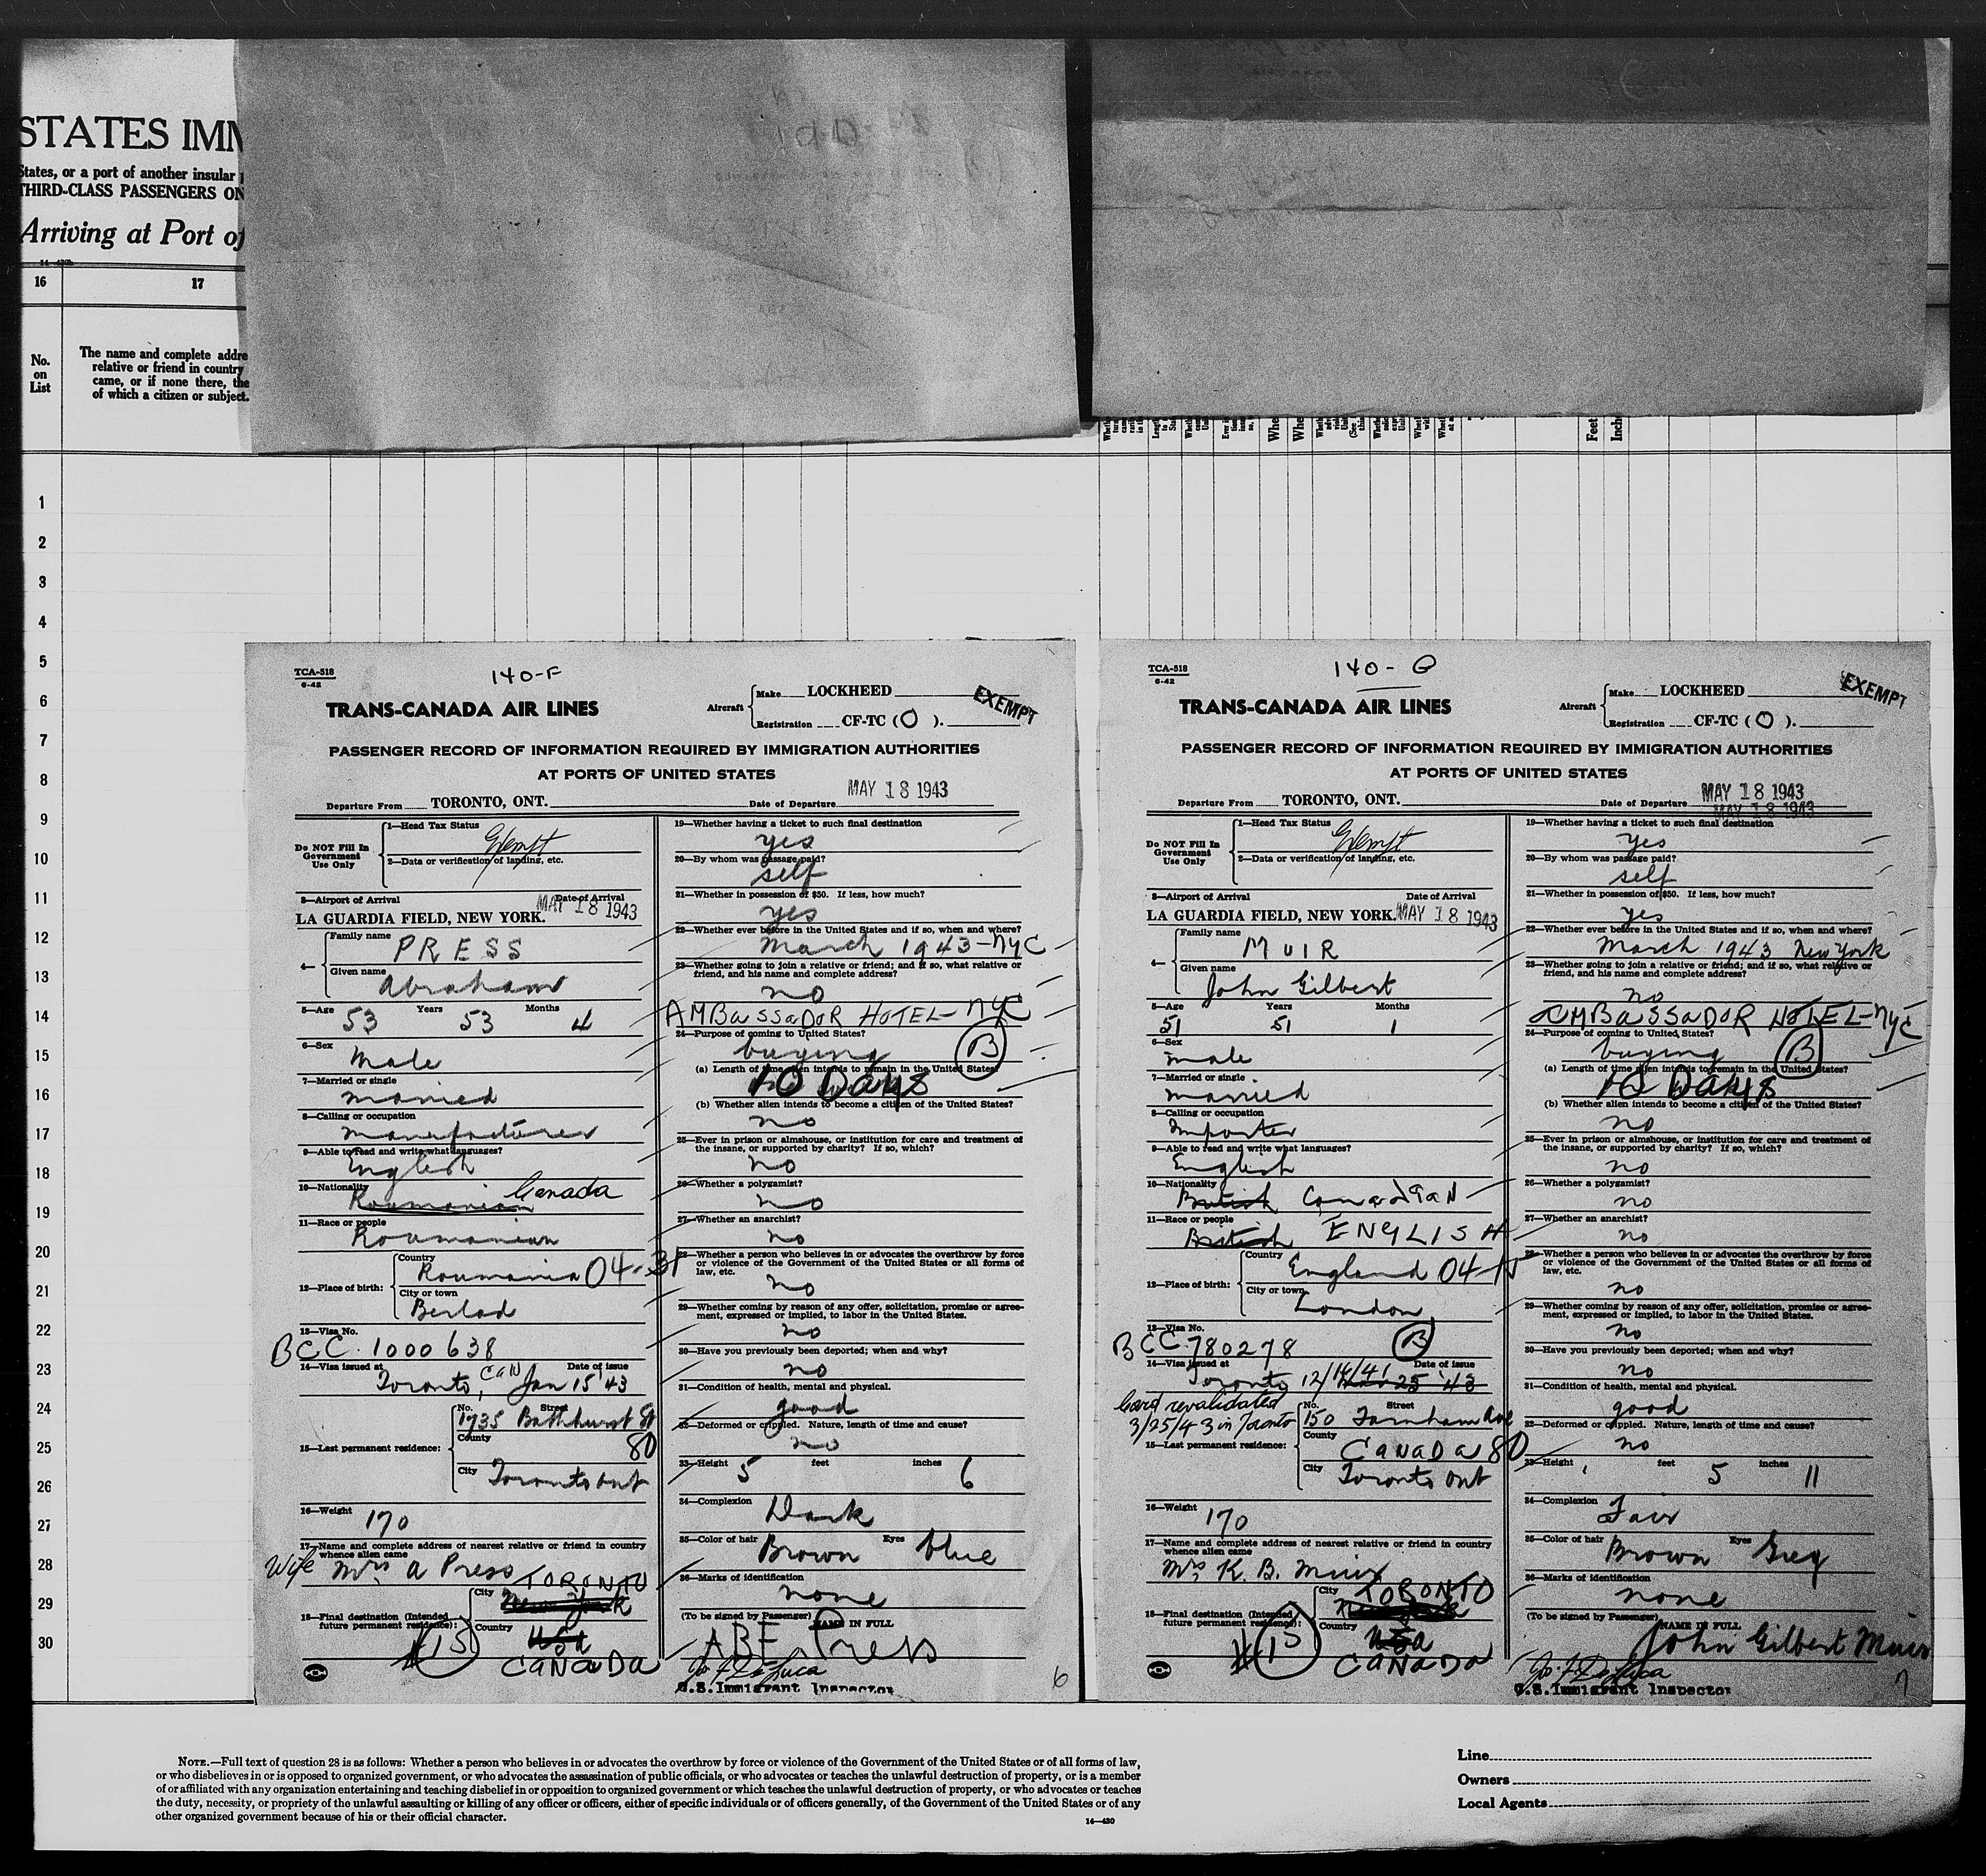 STATES IMM
States, or a port of another insular
THIRD-CLASS PASSENGERS ON
Arriving at Port of
16 17
No. on List
The name and complete addre
relative or friend in country
came, or if none there, the
of which a citizen or subject.
Feet
Inch
1
2
3
4
5
6
7
8
9
10
11
12
13
14
15
16
17
18
19
20
21
22
23
24
25
26
27
28
29
30
TCA-518
6-42
140-F
TRANS-CANADA AIR LINES
Aircraft
Make LOCKHEED
Registration CF-TC (O).
EXEMPT
PASSENGER RECORD OF INFORMATION REQUIRED BY IMMIGRATION AUTHORITIES
AT PORTS OF UNITED STATES
Departure From TORONTO, ONT. Date of Departure MAY 18 1943
Do NOT Fill In Government Use Only
1—Head Tax Status
Exempt
2—Data or verification of landing, etc.
3—Airport of Arrival Date of Arrival
LA GUARDIA FIELD, NEW YORK. MAY 18 1943
4— Family name PRESS
Given name Abraham
5—Age 53 Years 53 Months 4
6—Sex
Male
7—Married or single
Married
8—Calling or occupation
Manufacturer
9—Able to read and write what languages?
English
10—Nationality
Roumanian Canada
11—Race or people
Roumanian
12—Place of birth:
Country
Roumania 04-31
City or town
Berlad
13—Visa No.
BCC. 1000638
14—Visa issued at Date of issue
Toronto, CAN Jan 15 '43
15—Last permanent residence:
No. Street
1735 Bathhurst St
County
80
City Toronto Ont
16—Weight
170
17—Name and complete address of nearest relative or friend in country
whence alien came
Wife Mrs A Press
18—Final destination (Intended
future permanent residence):
City TORONTO
New York
Country USA
CANADA
#15
19—Whether having a ticket to such final destination
yes
20—By whom was passage paid?
self
21—Whether in possession of $50. If less, how much?
yes
22—Whether ever before in the United States and if so, when and where?
March 1943-NYC
23—Whether going to join a relative or friend; and if so, what relative or
friend, and his name and complete address?
no
AMBASSADOR HOTEL-NYC
24—Purpose of coming to United States?
buying B
(a) Length of time alien intends to remain in the United States?
10 DAYS
(b) Whether alien intends to become a citizen of the United States?
no
25—Ever in prison or almshouse, or institution for care and treatment of
the insane, or supported by charity? If so, which?
no
26—Whether a polygamist?
no
27—Whether an anarchist?
no
28—Whether a person who believes in or advocates the overthrow by force
or violence of the Government of the United States or all forms of
law, etc.
no
29—Whether coming by reason of any offer, solicitation, promise or agree-
ment, expressed or implied, to labor in the United States.
no
30—Have you previously been deported; when and why?
no
31—Condition of health, mental and physical.
good
32—Deformed or crippled. Nature, length of time and cause?
no
33—Height 5 feet inches 6
34—Complexion
Dark
35—Color of hair Eyes
Brown blue
36—Marks of identification
none
(To be signed by Passenger) NAME IN FULL
ABE Press
U.S. Immigrant Inspector
6
TCA-518
6-42
140-G
TRANS-CANADA AIR LINES
Aircraft
Make LOCKHEED
Registration CF-TC (O).
EXEMPT
PASSENGER RECORD OF INFORMATION REQUIRED BY IMMIGRATION AUTHORITIES
AT PORTS OF UNITED STATES
MAY 18 1943
Departure From TORONTO, ONT. Date of Departure MAY 18 1943
Do NOT Fill In Government Use Only
1—Head Tax Status
Exempt
2—Data or verification of landing, etc.
3—Airport of Arrival Date of Arrival
LA GUARDIA FIELD, NEW YORK. MAY 18 1943
4— Family name MUIR
Given name John Gilbert
5—Age 51 Years 51 Months 1
6—Sex
male
7—Married or single
married
8—Calling or occupation
Importer
9—Able to read and write what languages?
English
10—Nationality
British Canadian
11—Race or people
British ENGLISH
12—Place of birth:
Country
England 04-15
City or town
London
13—Visa No.
BCC. 780278 B
14—Visa issued at Date of issue
Toronto 12/16/41 25 '43
Card revalidated
3/25/43 in Toronto
15—Last permanent residence:
No. Street
150 Farnham Ave
County
CANADA 80
City Toronto Ont
16—Weight
170
17—Name and complete address of nearest relative or friend in country
whence alien came
Mrs K. B. Muir
18—Final destination (Intended
future permanent residence):
City TORONTO
New York
Country USA
CANADA
#15
19—Whether having a ticket to such final destination
yes
20—By whom was passage paid?
self
21—Whether in possession of $50. If less, how much?
yes
22—Whether ever before in the United States and if so, when and where?
March 1943 New York
23—Whether going to join a relative or friend; and if so, what relative or
friend, and his name and complete address?
no
AMBASSADOR HOTEL-NYC
24—Purpose of coming to United States?
buying B
(a) Length of time alien intends to remain in the United States?
10 DAYS
(b) Whether alien intends to become a citizen of the United States?
no
25—Ever in prison or almshouse, or institution for care and treatment of
the insane, or supported by charity? If so, which?
no
26—Whether a polygamist?
no
27—Whether an anarchist?
no
28—Whether a person who believes in or advocates the overthrow by force
or violence of the Government of the United States or all forms of
law, etc.
no
29—Whether coming by reason of any offer, solicitation, promise or agree-
ment, expressed or implied, to labor in the United States.
no
30—Have you previously been deported; when and why?
no
31—Condition of health, mental and physical.
good
32—Deformed or crippled. Nature, length of time and cause?
no
33—Height feet 5 inches 11
34—Complexion
Fair
35—Color of hair Eyes
Brown Grey
36—Marks of identification
none
(To be signed by Passenger) NAME IN FULL
John Gilbert Muir
U.S. Immigrant Inspector
7
NOTE.—Full text of question 28 is as follows: Whether a person who believes in or advocates the overthrow by force or violence of the Government of the United States or of all forms of law,
or who disbelieves in or is opposed to organized government, or who advocates the assassination of public officials, or who advocates or teaches the unlawful destruction of property, or is a member
of or affiliated with any organization entertaining and teaching disbelief in or opposition to organized government or which teaches the unlawful destruction of property, or who advocates or teaches
the duty, necessity, or propriety of the unlawful assaulting or killing of any officer or officers, either of specific individuals or of officers generally, of the Government of the United States or of any
other organized government because of his or their official character.
14—430
Line
Owners
Local Agents